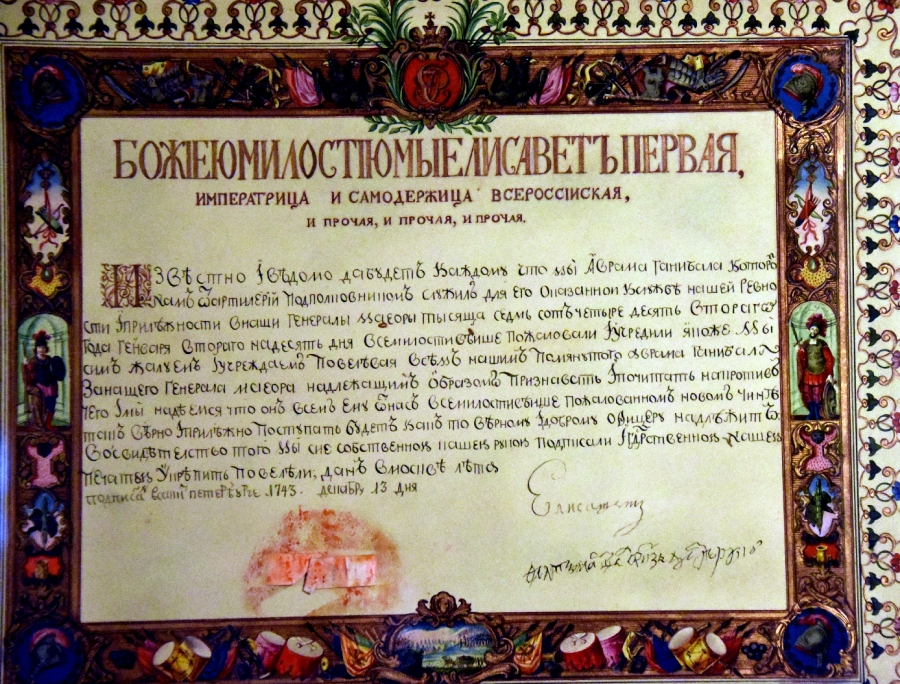 БОЖІЕЮ МИЛОСТІЮ МЫ ЕЛИСАВЕТЪ ПЕРВАЯ,
ИМПЕРАТРИЦА И САМОДЕРЖИЦА ВСЕРОССІИСКАЯ,
И ПРОЧАЯ, И ПРОЧАЯ, И ПРОЧАЯ.
ИЗВѢСТНО IВѢДОМО ДАБУДЕТЪ КАЖДОМУ ЧТО МЫ АВРАМА ГАНИБАЛА КОТОРО
НАМЪ ПОДПОЛКОВНИКОМЪ СЛУЖИЛЪ ДЛЯ ЕГО ОКАЗАННОЙ КСЛУЖБѢ НАШЕЙ РЕВНО
СТИ IПРИЛѢЖНОСТИ ВНАШИ ГЕНЕРАЛЫ МАЕОРЫ ТЫСЯЩА СЕДМЬ СОТЪ ЧЕТЫРЕ ДЕСЯТЬ ВТОРАГО
ГОДА ГЕНВАРЯ ВТОРАГО НАДЕСЯТЬ ДНЯ ВСЕМИЛОСТИВѢЙШЕ ПОЖАЛОВАЛИ IУЧРЕДИЛИ ЯКОЖЕ МЫ
СИМЪ ЖАЛУЕМЪ IУЧРЕЖДАЕМЪ ПОВЕЛѢВАЯ ВСѢМЪ НАШИМЪ ПОМЯНУТОГО АВРАМА ГАНИБАЛА
ЗАНАШЕГО ГЕНЕРАЛА МАЕОРА НАДЛЕЖАЩИМЪ ОБРАЗОМЪ ПРИЗНАВАТЬ IПОЧИТАТЬ НАПРОТИВЪ
ЧЕГО IМЫ НАДѢЕМСЯ ЧТО ОНЪ ВСЕМЪ ЕМУ ОТНАСЪ ВСЕМИЛОСТИВѢЙШЕ ПОЖАЛОВАННОМЪ НОВОМЪ ЧИНѢ
ТАКЪ ВѢРНО IПРИЛѢЖНО ПОСТУПАТЬ БУДЕТЪ КАКЪ ТО ВѢРНОМУ IДОБРОМУ ОФИЦЕРУ НАДЛѢЖИТЪ
ВОСВИДѢТЕЛСТВО ТОГО МЫ СИЕ СОБСТВЕННОЮ НАШЕЮ РУКОЮ ПОДПИСАЛИ НАШЕЮ
ПЕЧАТЬЮ УКРѢПИТЬ ПОВЕЛѢЛИ, ДАНЪ ВМОСКВѢ ЛѢТО
1743. ДЕКАБРЯ 13 ДНЯ
Елисаветъ